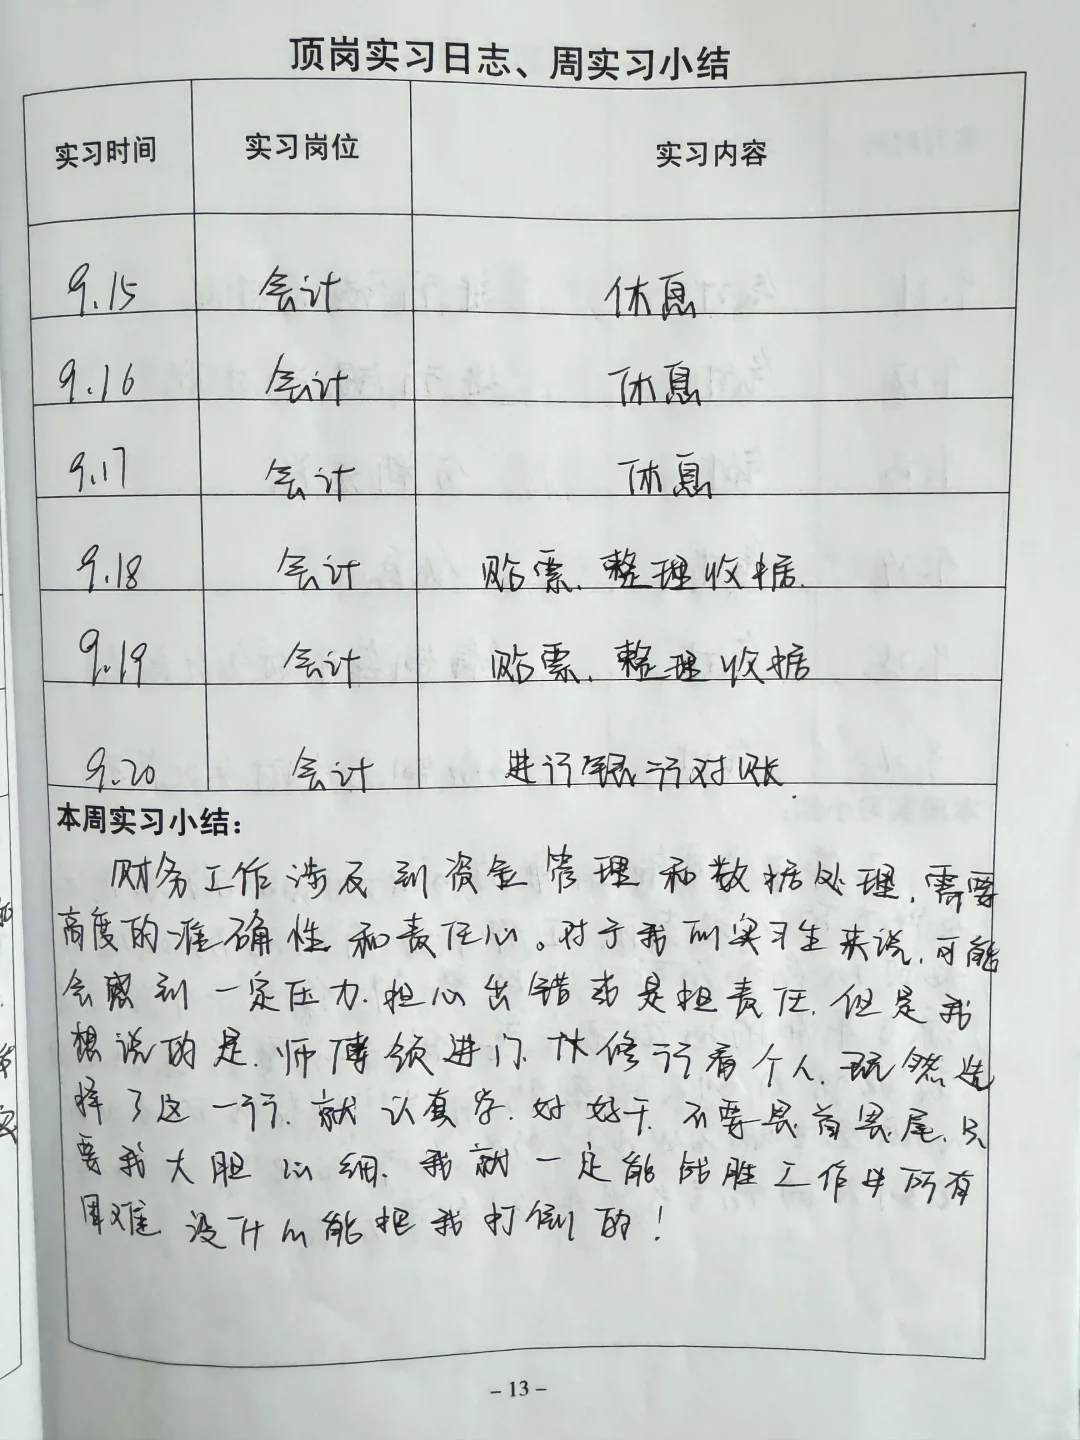 顶岗实习日志、周实习小结
实习时间 实习岗位 实习内容
9.15 会计 休息
9.16 会计 休息
9.17 会计 休息
9.18 会计 贴票、整理收据.
9.19 会计 贴票、整理收据
9.20 会计 进行银行对账.
本周实习小结：
财务工作涉及到资金管理和数据处理，需要
高度的准确性和责任心。对于我们实习生来说，可能
会感到一定压力，担心出错或是担责任，但是我
想说的是，师傅领进门，修行看个人，既然选
择了这一行，就认真学，好好干，不要畏首畏尾，只
要我大胆心细，我就一定能战胜工作中所有
困难，没什么能把我打倒的！
- 13 -